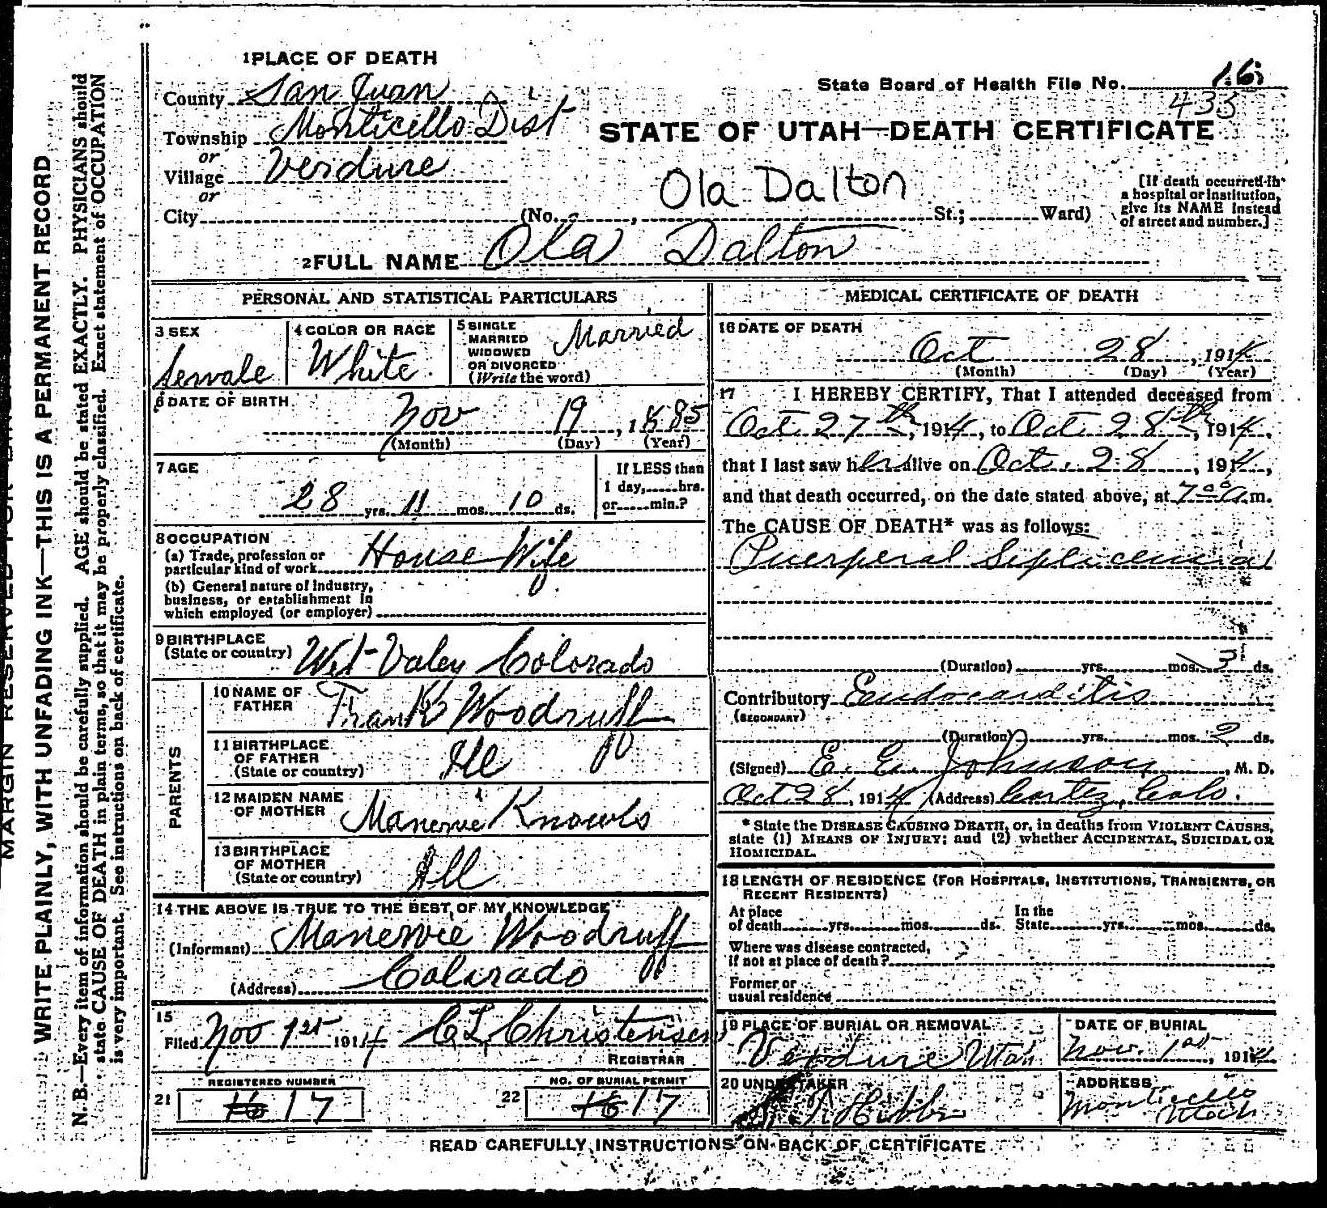 MARGIN RESERVED FOR
WRITE PLAINLY, WITH UNFADING INK—THIS IS A PERMANENT RECORD
N. B.—Every item of information should be carefully supplied. AGE should be stated EXACTLY. PHYSICIANS should
state CAUSE OF DEATH in plain terms, so that it may be properly classified. Exact statement of OCCUPATION
is very important. See instructions on back of certificate.
1 PLACE OF DEATH
County San Juan
Township Monticello Dist
or
Village Verdure
or
City (No. , St.; Ward)
State Board of Health File No. 16
435
STATE OF UTAH—DEATH CERTIFICATE
Ola Dalton
[If death occurred in
a hospital or institution,
give its NAME instead
of street and number.]
2 FULL NAME Ola Dalton
PERSONAL AND STATISTICAL PARTICULARS
3 SEX
Female
4 COLOR OR RACE
White
5 SINGLE
MARRIED
WIDOWED
OR DIVORCED
(Write the word)
Married
6 DATE OF BIRTH
Nov 19, 1885
(Month) (Day) (Year)
7 AGE
28 yrs. 11 mos. 10 ds.
If LESS than
1 day, hrs.
or min.?
8 OCCUPATION
(a) Trade, profession or
particular kind of work House Wife
(b) General nature of industry,
business, or establishment in
which employed (or employer)
9 BIRTHPLACE
(State or country) Wet-Valey Colorado
PARENTS
10 NAME OF
FATHER Frank Woodruff
11 BIRTHPLACE
OF FATHER
(State or country) Ill
12 MAIDEN NAME
OF MOTHER Manervie Knowls
13 BIRTHPLACE
OF MOTHER
(State or country) Ill
14 THE ABOVE IS TRUE TO THE BEST OF MY KNOWLEDGE
(Informant) Manervie Woodruff
(Address) Colorado
15
Filed Nov 1st 1914 C L Christensen
REGISTRAR
21 REGISTERED NUMBER
16 17
22 NO. OF BURIAL PERMIT
16 17
MEDICAL CERTIFICATE OF DEATH
16 DATE OF DEATH
Oct 28, 1914
(Month) (Day) (Year)
17 I HEREBY CERTIFY, That I attended deceased from
Oct 27th, 1914, to Oct 28th, 1914,
that I last saw her alive on Oct. 28, 1914,
and that death occurred, on the date stated above, at 7 00 a m.
The CAUSE OF DEATH* was as follows:
Puerperal Septicemia
(Duration) yrs. mos. 3 ds.
Contributory Endocarditis
(SECONDARY)
(Duration) yrs. mos. 2 ds.
(Signed) E. E. Johnson, M. D.
Oct 28, 1914 (Address) Cortez, Colo.
* State the DISEASE CAUSING DEATH, or, in deaths from VIOLENT CAUSES,
state (1) MEANS OF INJURY; and (2) whether ACCIDENTAL, SUICIDAL OR
HOMICIDAL.
18 LENGTH OF RESIDENCE (FOR HOSPITALS, INSTITUTIONS, TRANSIENTS, OR
RECENT RESIDENTS)
At place
of death yrs. mos. ds.
In the
State yrs. mos. ds.
Where was disease contracted,
if not at place of death?
Former or
usual residence
19 PLACE OF BURIAL OR REMOVAL
Verdure Utah
DATE OF BURIAL
Nov. 1st, 1914
20 UNDERTAKER
Hibbs
ADDRESS
Monticello
Utah
READ CAREFULLY INSTRUCTIONS ON BACK OF CERTIFICATE